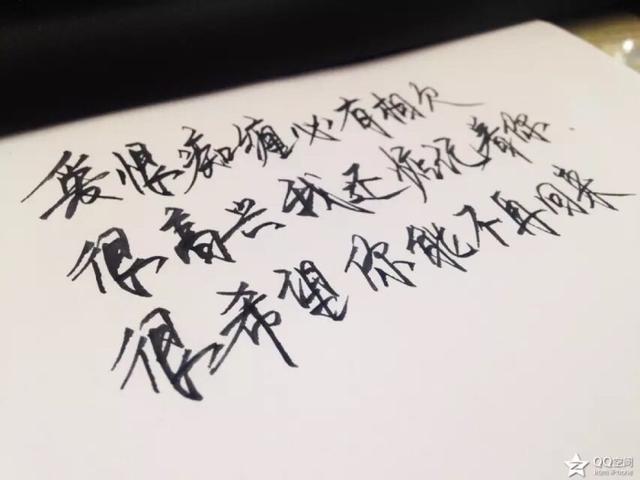 爱恨痴缠必有相欠
很高兴我还惦记着你.
很希望你能不再回来
QQ空间
from iPhone